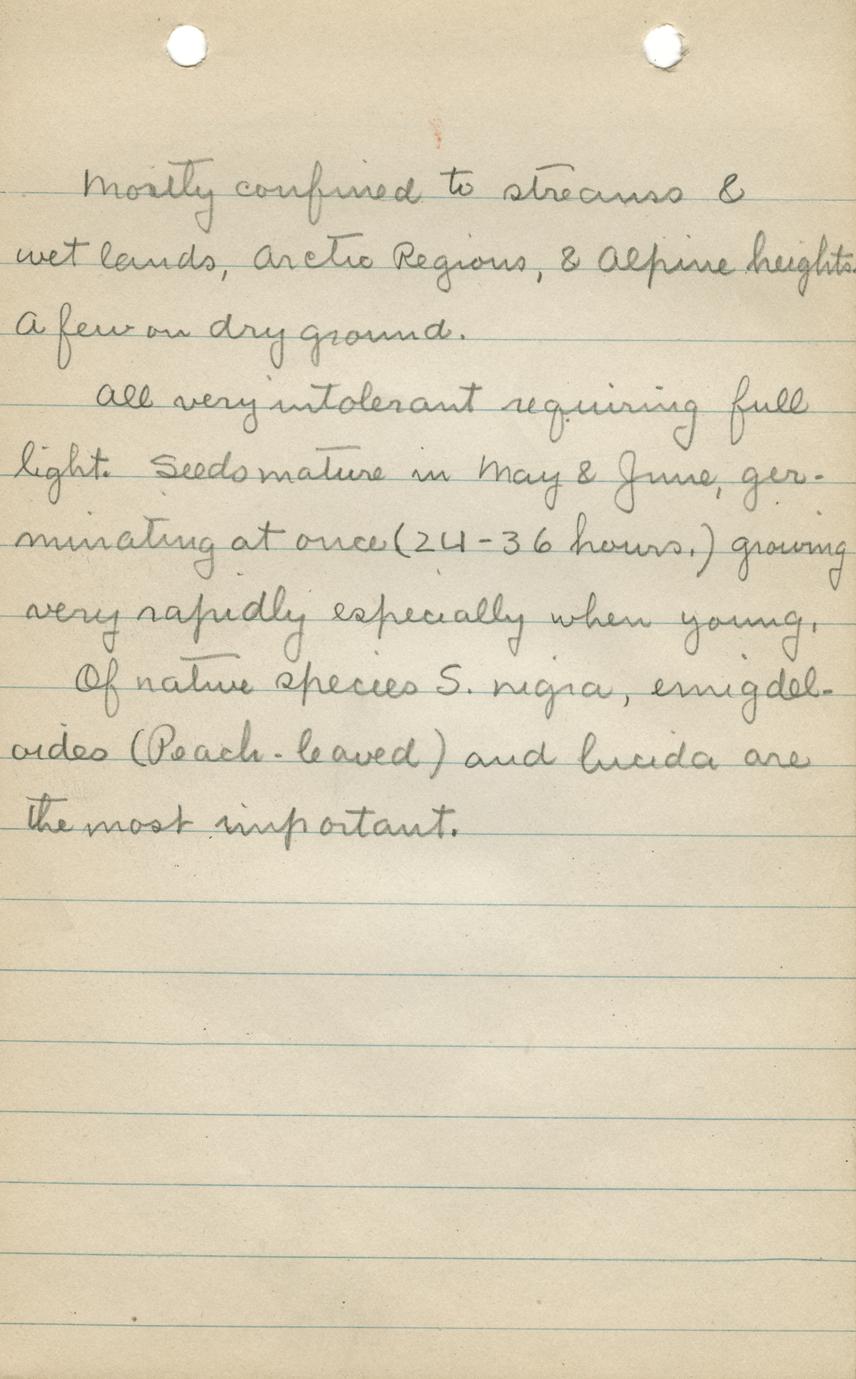 Mostly confined to streams &
wet lands, Arctic Regions, & Alpine heights.
A few on dry ground.
All very intolerant requiring full
light. Seeds mature in May & June, ger-
minating at once (24-36 hours.) growing
very rapidly especially when young.
Of native species S. nigra, emigdel-
oides (Peach-leaved) and lucida are
the most important.